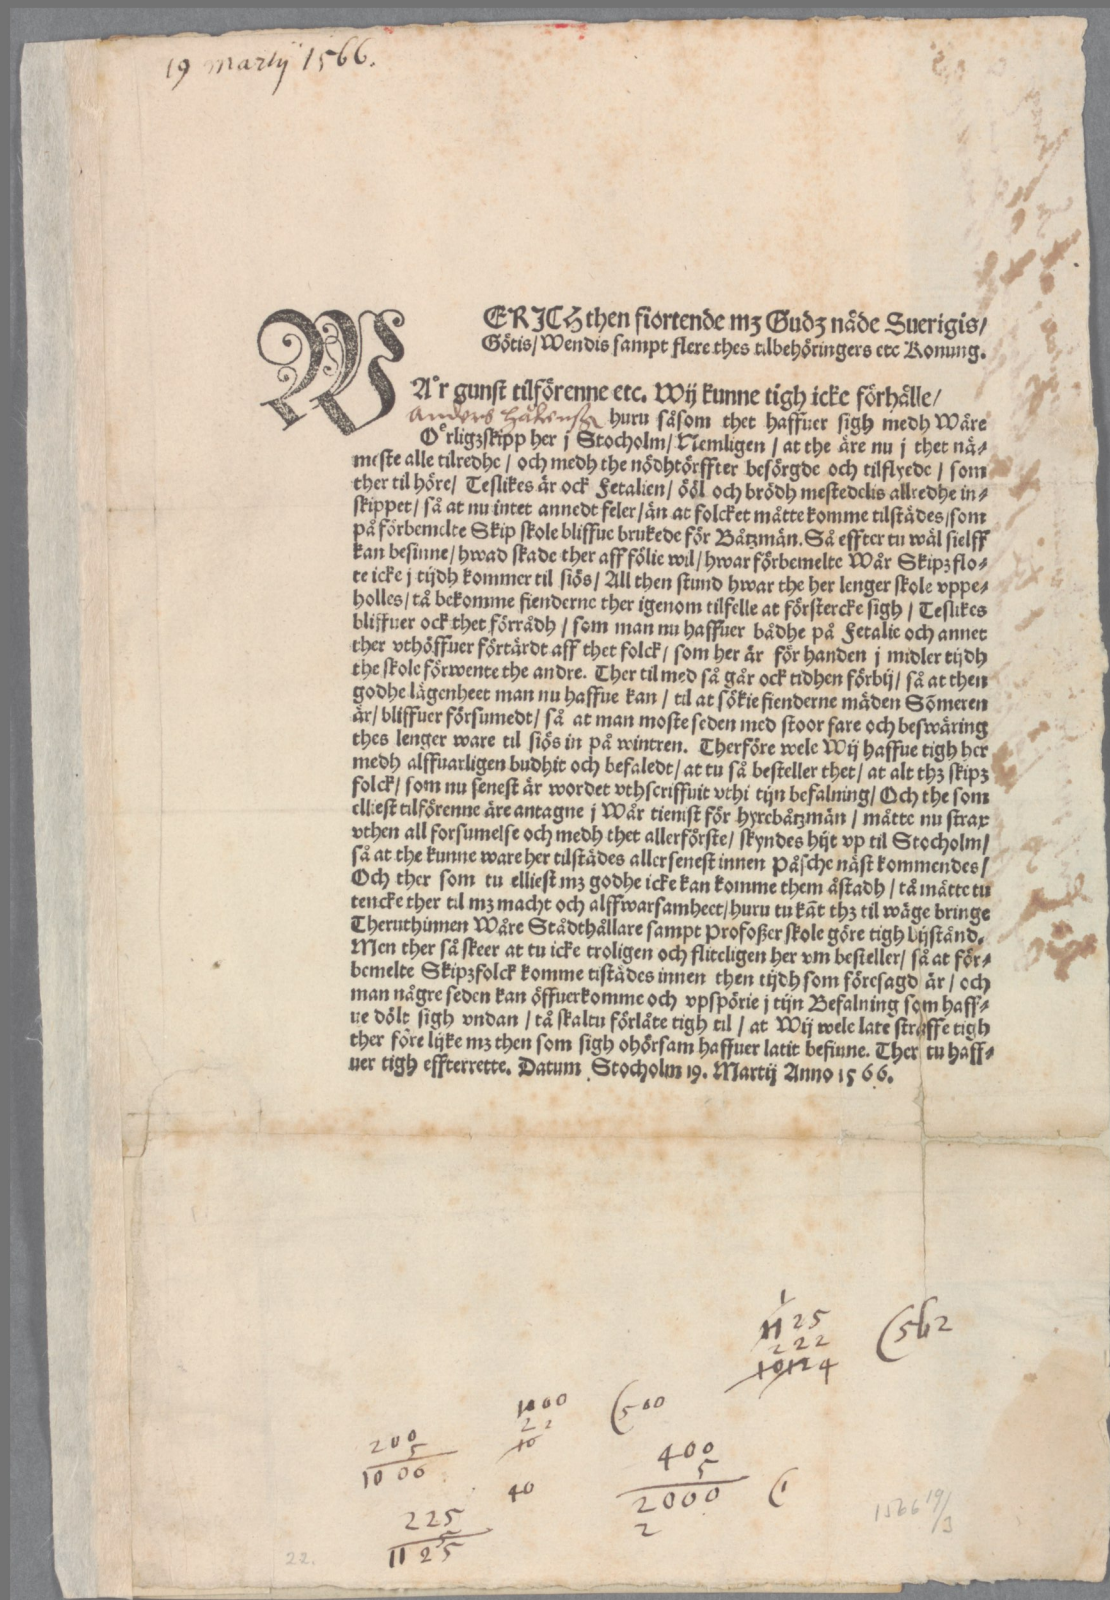 19 martij 1566.
ERICH then fiortende mz Gudz nåde Suerigis/
Götis/ Wendis sampt flere thes tilbehöringers etc Konung.
WAͤr gunst tilförenne etc. Wij kunne tigh icke förhålle/
Anders håkenss huru såsom thet haffuer sigh medh Wåre
Oͤrligzskipp her j Stocholm/ Nemligen / at the äre nu j thet nä-
meste alle tilredhe / och medh the nödhtörffter besörgde och tilflyede / som
ther til höre/ Teslikes är ock Fetalien/ ööl och brödh mestedelis allredhe in-
skippet/ så at nu intet annedt feler/än at folcket måtte komme tilstädes/som
på förbemelte Skip skole bliffue brukede för Båtzmän. Så effter tu wäl sielff
kan besinne/ hwad skade ther aff fölie wil/ hwar förbemelte Wår Skipzflo-
te icke j tijdh kommer til siös/ All then stund hwar the her lenger skole vppe-
holles/ tå bekomme fienderne ther igenom tilfelle at förstercke sigh / Teslikes
bliffuer ock thet förrådh / som man nu haffuer bådhe på Fetalie och annet
ther vthöffuer förtärdt aff thet folck/ som her är för handen j midler tijdh
the skole förwente the andre. Ther til med så går ock tidhen förbij/ så at then
godhe lägenheet man nu haffue kan / til at sökie fienderne mäden Sōmeren
är/ bliffuer försumedt/ så at man moste seden med stoor fare och beswäring
thes lenger ware til siös in på wintren. Therföre wele Wij haffue tigh her
medh alffuarligen budhit och befaledt/ at tu så besteller thet/ at alt thz skipz
folck/ som nu senest är wordet vthscriffuit vthi tijn befalning/ Och the som
elliest tilförenne äre antagne j Wår tienist för hyrebåtzmän / måtte nu strax
vthen all forsumelse och medh thet allerförste/ skyndes hijt vp til Stocholm/
så at the kunne ware her tilstädes allersenest innen Påsche näst kommendes/
Och ther som tu elliest mz godhe icke kan komme them åstadh / tå måtte tu
tencke ther til mz macht och alffwarsamheet/huru tu kāt thz til wäge bringe
Theruthinnen Wåre Stådthållare sampt Profoßer skole göre tigh bijstånd.
Men ther så skeer at tu icke troligen och fliteligen her vm besteller/ så at för-
bemelte Skipzfolck komme tistådes innen then tijdh som föresagd är / och
man någre seden kan öffuerkomme och vpspörie j tijn Befalning som haff-
ue dölt sigh vndan / tå skaltu förlåte tigh til / at Wij wele late straffe tigh
ther före lijke mz then som sigh ohörsam haffuer latit befinne. Ther tu haff-
uer tigh effterrette. Datum Stocholm 19. Martij Anno 1566.
1
1125 (562
222
10124
1000 (500
22
10
200
5
1000
400
5
2000 (1
2
40
225
5
1125
1566 19/3
22.